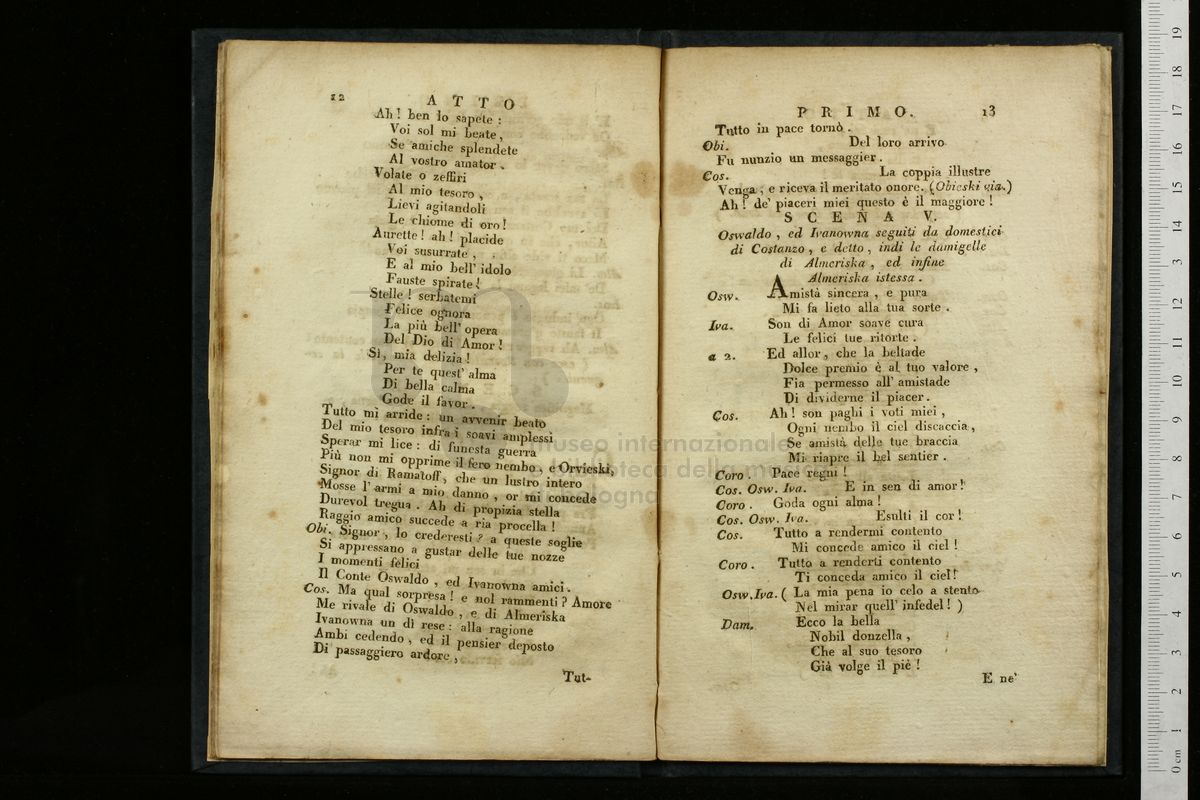 12
ATTO
Ah! ben lo sapete:
Voi sol mi beate,
Se amiche splendete
Al vostro amator.
Volate o zeffiri
Al mio tesoro,
Lievi agitandoli
Le chiome di oro!
Aurette! ah! placide
Voi susurrate,
E al mio bell' idolo
Fauste spirate!
Stelle! serbatemi
Felice ognora
La più bell' opera
Del Dio di Amor!
Sì, mia delizia!
Per te quest' alma
Di bella calma
Gode il favor.
Tutto mi arride: un avvenir beato
Del mio tesoro infra i soavi amplessi
Sperar mi lice: di funesta guerra
Più non mi opprime il fero nembo, e Orvieski,
Signor di Ramatoff, che un lustro intero
Mosse l'armi a mio danno, or mi concede
Durevol tregua. Ah di propizia stella
Raggio amico succede a ria procella!
Obi. Signor, lo crederesti? a queste soglie
Si appressano a gustar delle tue nozze
I momenti felici
Il Conte Oswaldo, ed Ivanowna amici.
Cos. Ma qual sorpresa! e nol rammenti? Amore
Me rivale di Oswaldo, e di Almeriska
Ivanowna un dì rese: alla ragione
Ambi cedendo, ed il pensier deposto
Di passaggiero ardore,
Tut-
PRIMO.
13
Tutto in pace tornò.
Obi. Del loro arrivo
Fu nunzio un messaggier.
Cos. La coppia illustre
Venga, e riceva il meritato onore. (Obieski via.)
Ah! de' piaceri miei questo è il maggiore!
SCENA V.
Oswaldo, ed Ivanowna seguiti da domestici
di Costanzo, e detto, indi le damigelle
di Almeriska, ed infine
Almeriska istessa.
Osw. Amistà sincera, e pura
Mi fa lieto alla tua sorte.
Iva. Son di Amor soave cura
Le felici tue ritorte.
a 2. Ed allor, che la beltade
Dolce premio è al tuo valore,
Fia permesso all' amistade
Di dividerne il piacer.
Cos. Ah! son paghi i voti miei,
Ogni nembo il ciel discaccia,
Se amistà delle tue braccia
Mi riapre il bel sentier.
Coro. Pace regni!
Cos. Osw. Iva. E in sen di amor!
Coro. Goda ogni alma!
Cos. Osw. Iva. Esulti il cor!
Cos. Tutto a rendermi contento
Mi concede amico il ciel!
Coro. Tutto a renderti contento
Ti conceda amico il ciel!
Osw. Iva. ( La mia pena io celo a stento
Nel mirar quell' infedel! )
Dam. Ecco la bella
Nobil donzella,
Che al suo tesoro
Già volge il piè!
E ne'
museo internazionale
biblioteca della musica
bologna
0 cm 1 2 3 4 5 6 7 8 9 10 11 12 13 14 15 16 17 18 19